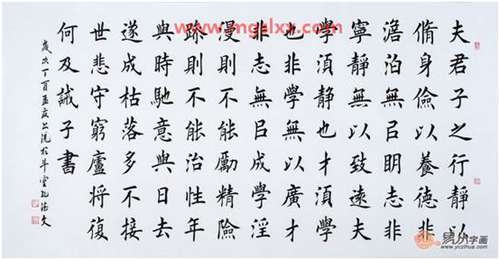 夫君子之行靜以
脩身儉以養德非
澹泊無㠯明志非
寧靜無以致遠夫
學須靜也才須學
也非學無以廣才
非志無㠯成學淫
漫則不能勵精險
躁則不能治性年
與時馳意與日去
遂成枯落多不接
世悲守窮廬將復
何及誡子書
歲次丁酉孟夏上浣於斗
www.mgalxx.com
易从字画
www.yiczihua.com